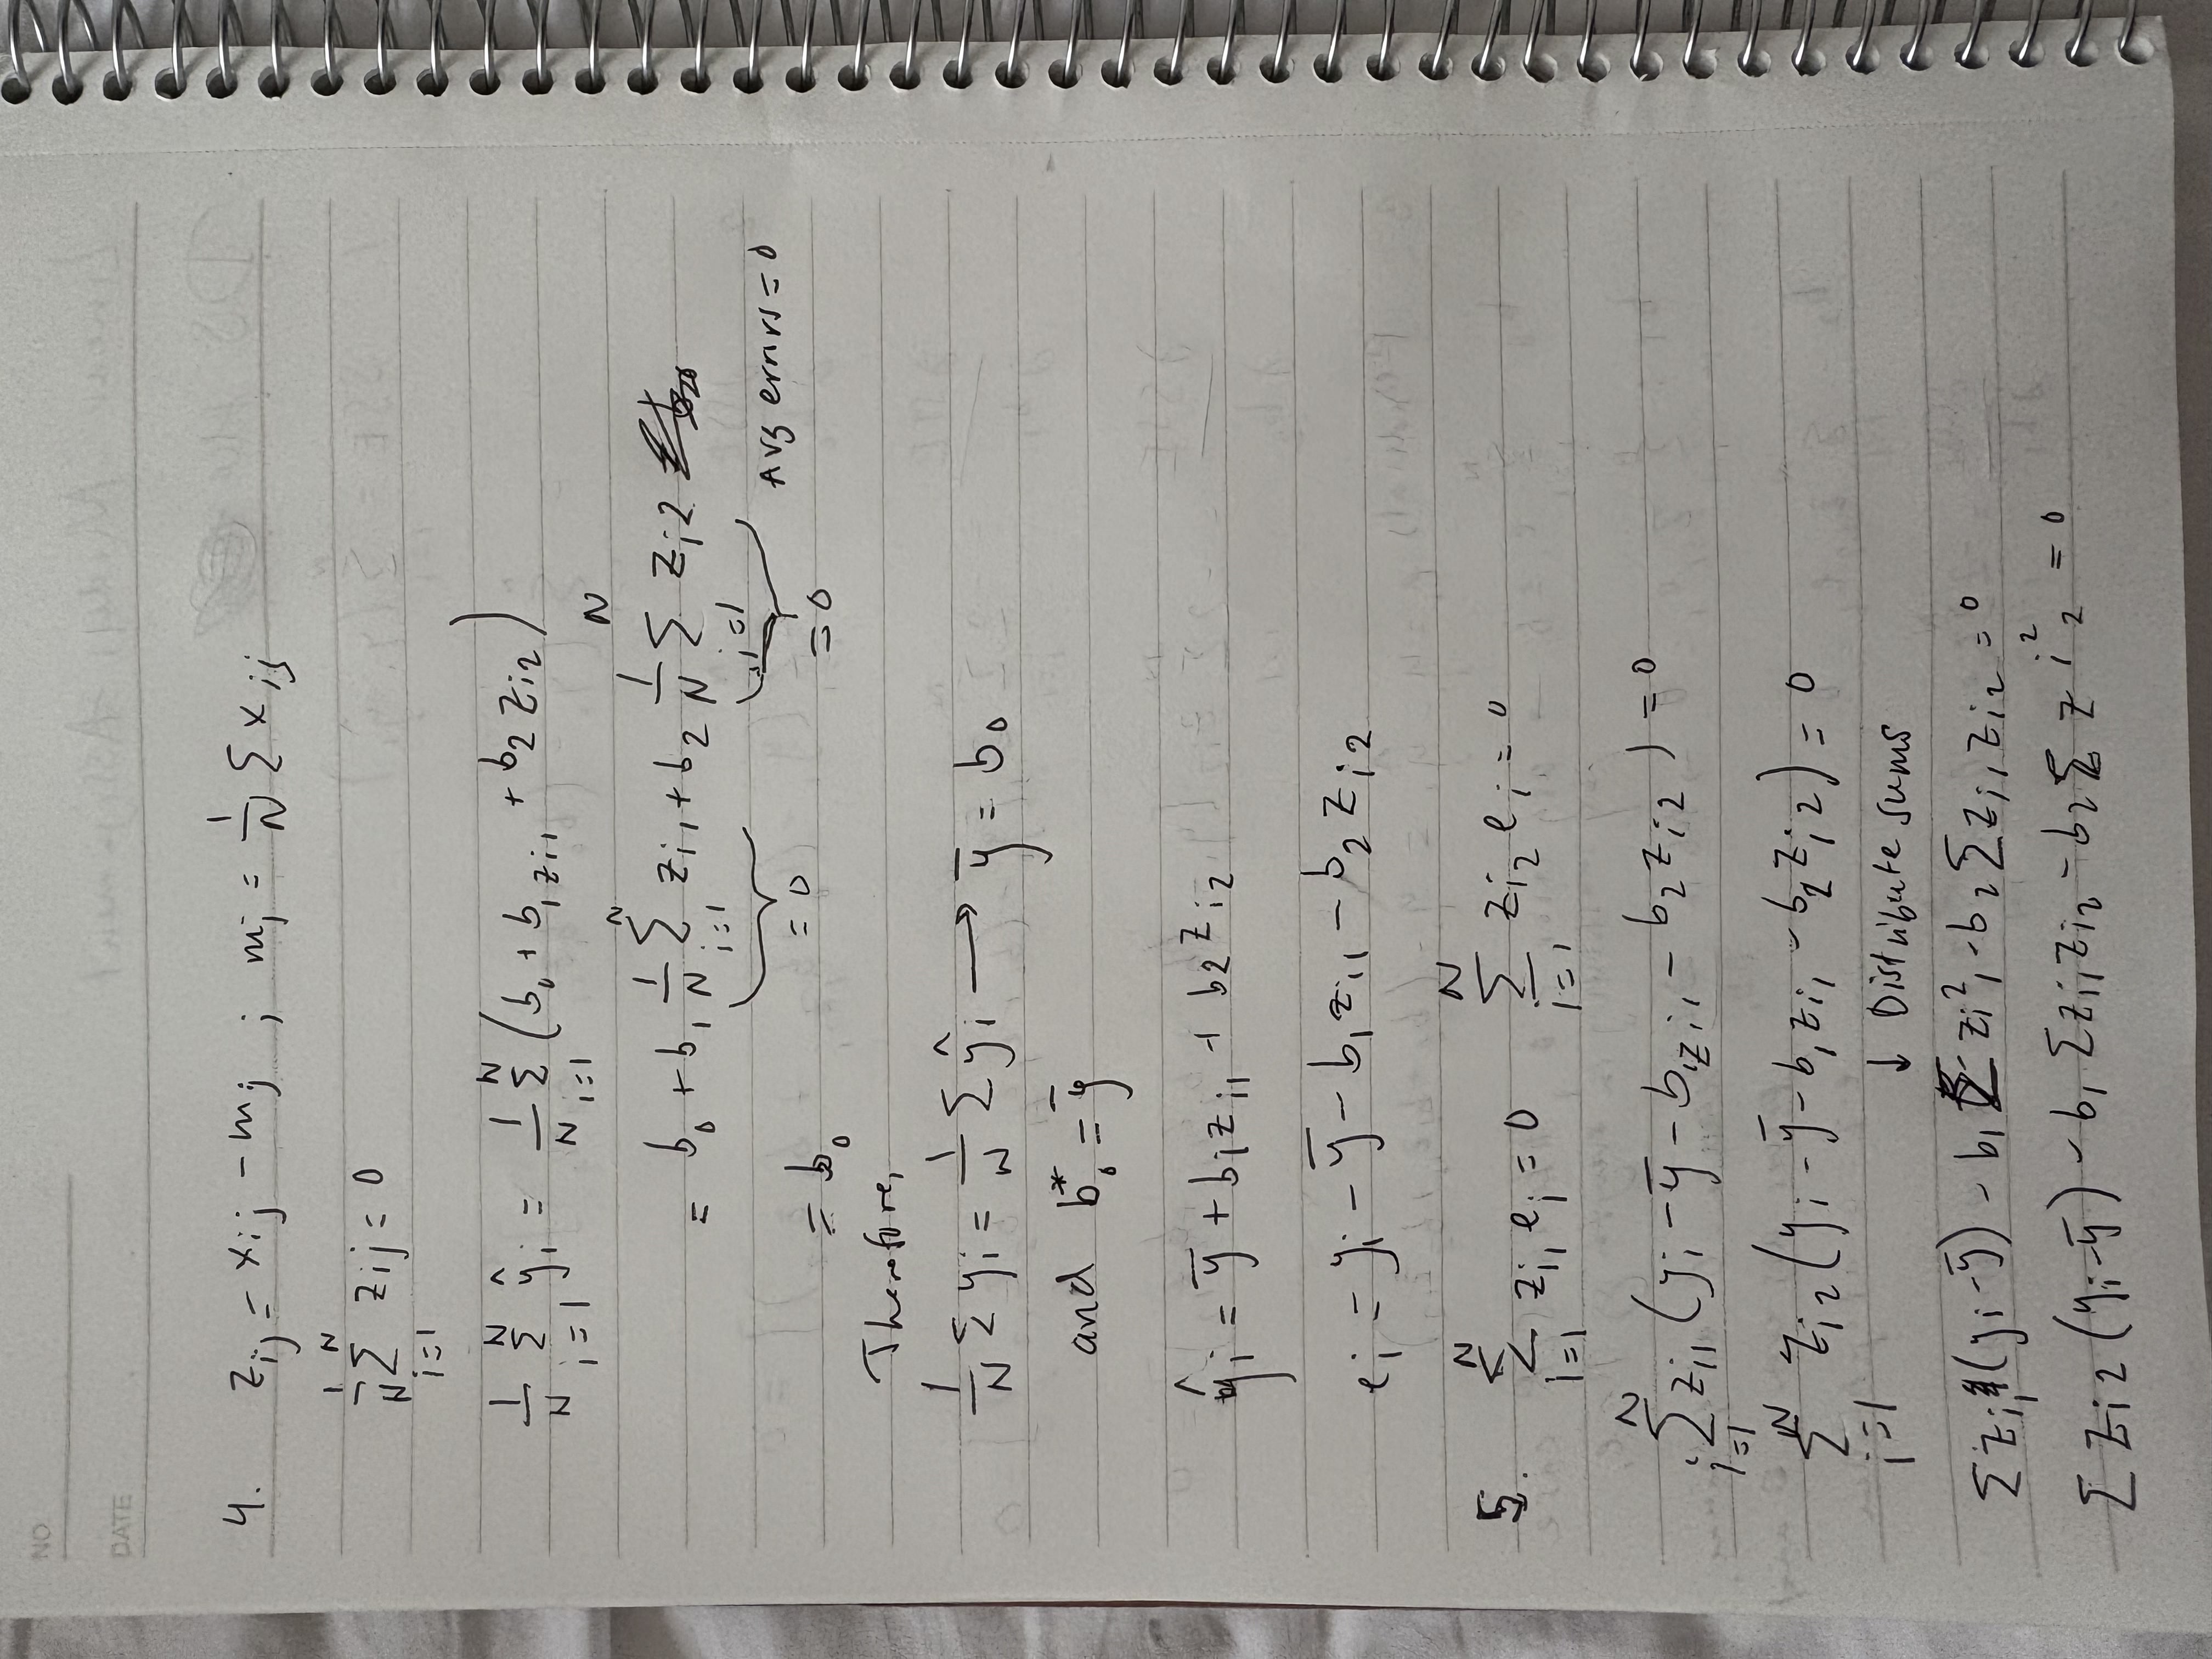 NO
DATE
4. z_ij = x_ij - m_j ; m_j = 1/N Σ x_ij
1/N Σ_{i=1}^{N} z_ij = 0
1/N Σ_{i=1}^{N} ŷ_i = 1/N Σ_{i=1}^{N} (b_0 + b_1 z_i1 + b_2 z_i2)
= b_0 + b_1 1/N Σ_{i=1}^{N} z_i1 + b_2 1/N Σ_{i=1}^{N} z_i2
= 0 = 0 Avg errors = 0
= b_0
Therefore,
1/N Σ y_i = 1/N Σ ŷ_i → ȳ = b_0
and b_0^* = ȳ
ŷ_i = ȳ + b_1 z_i1 + b_2 z_i2
e_i = y_i - ȳ - b_1 z_i1 - b_2 z_i2
5. Σ_{i=1}^{N} z_i1 e_i = 0 Σ_{i=1}^{N} z_i2 e_i = 0
Σ_{i=1}^{N} z_i1 (y_i - ȳ - b_1 z_i1 - b_2 z_i2) = 0
Σ_{i=1}^{N} z_i2 (y_i - ȳ - b_1 z_i1 - b_2 z_i2) = 0
↓ Distribute sums
Σ z_i1 (y_i - ȳ) - b_1 Σ z_i1^2 - b_2 Σ z_i1 z_i2 = 0
Σ z_i2 (y_i - ȳ) - b_1 Σ z_i1 z_i2 - b_2 Σ z_i2^2 = 0